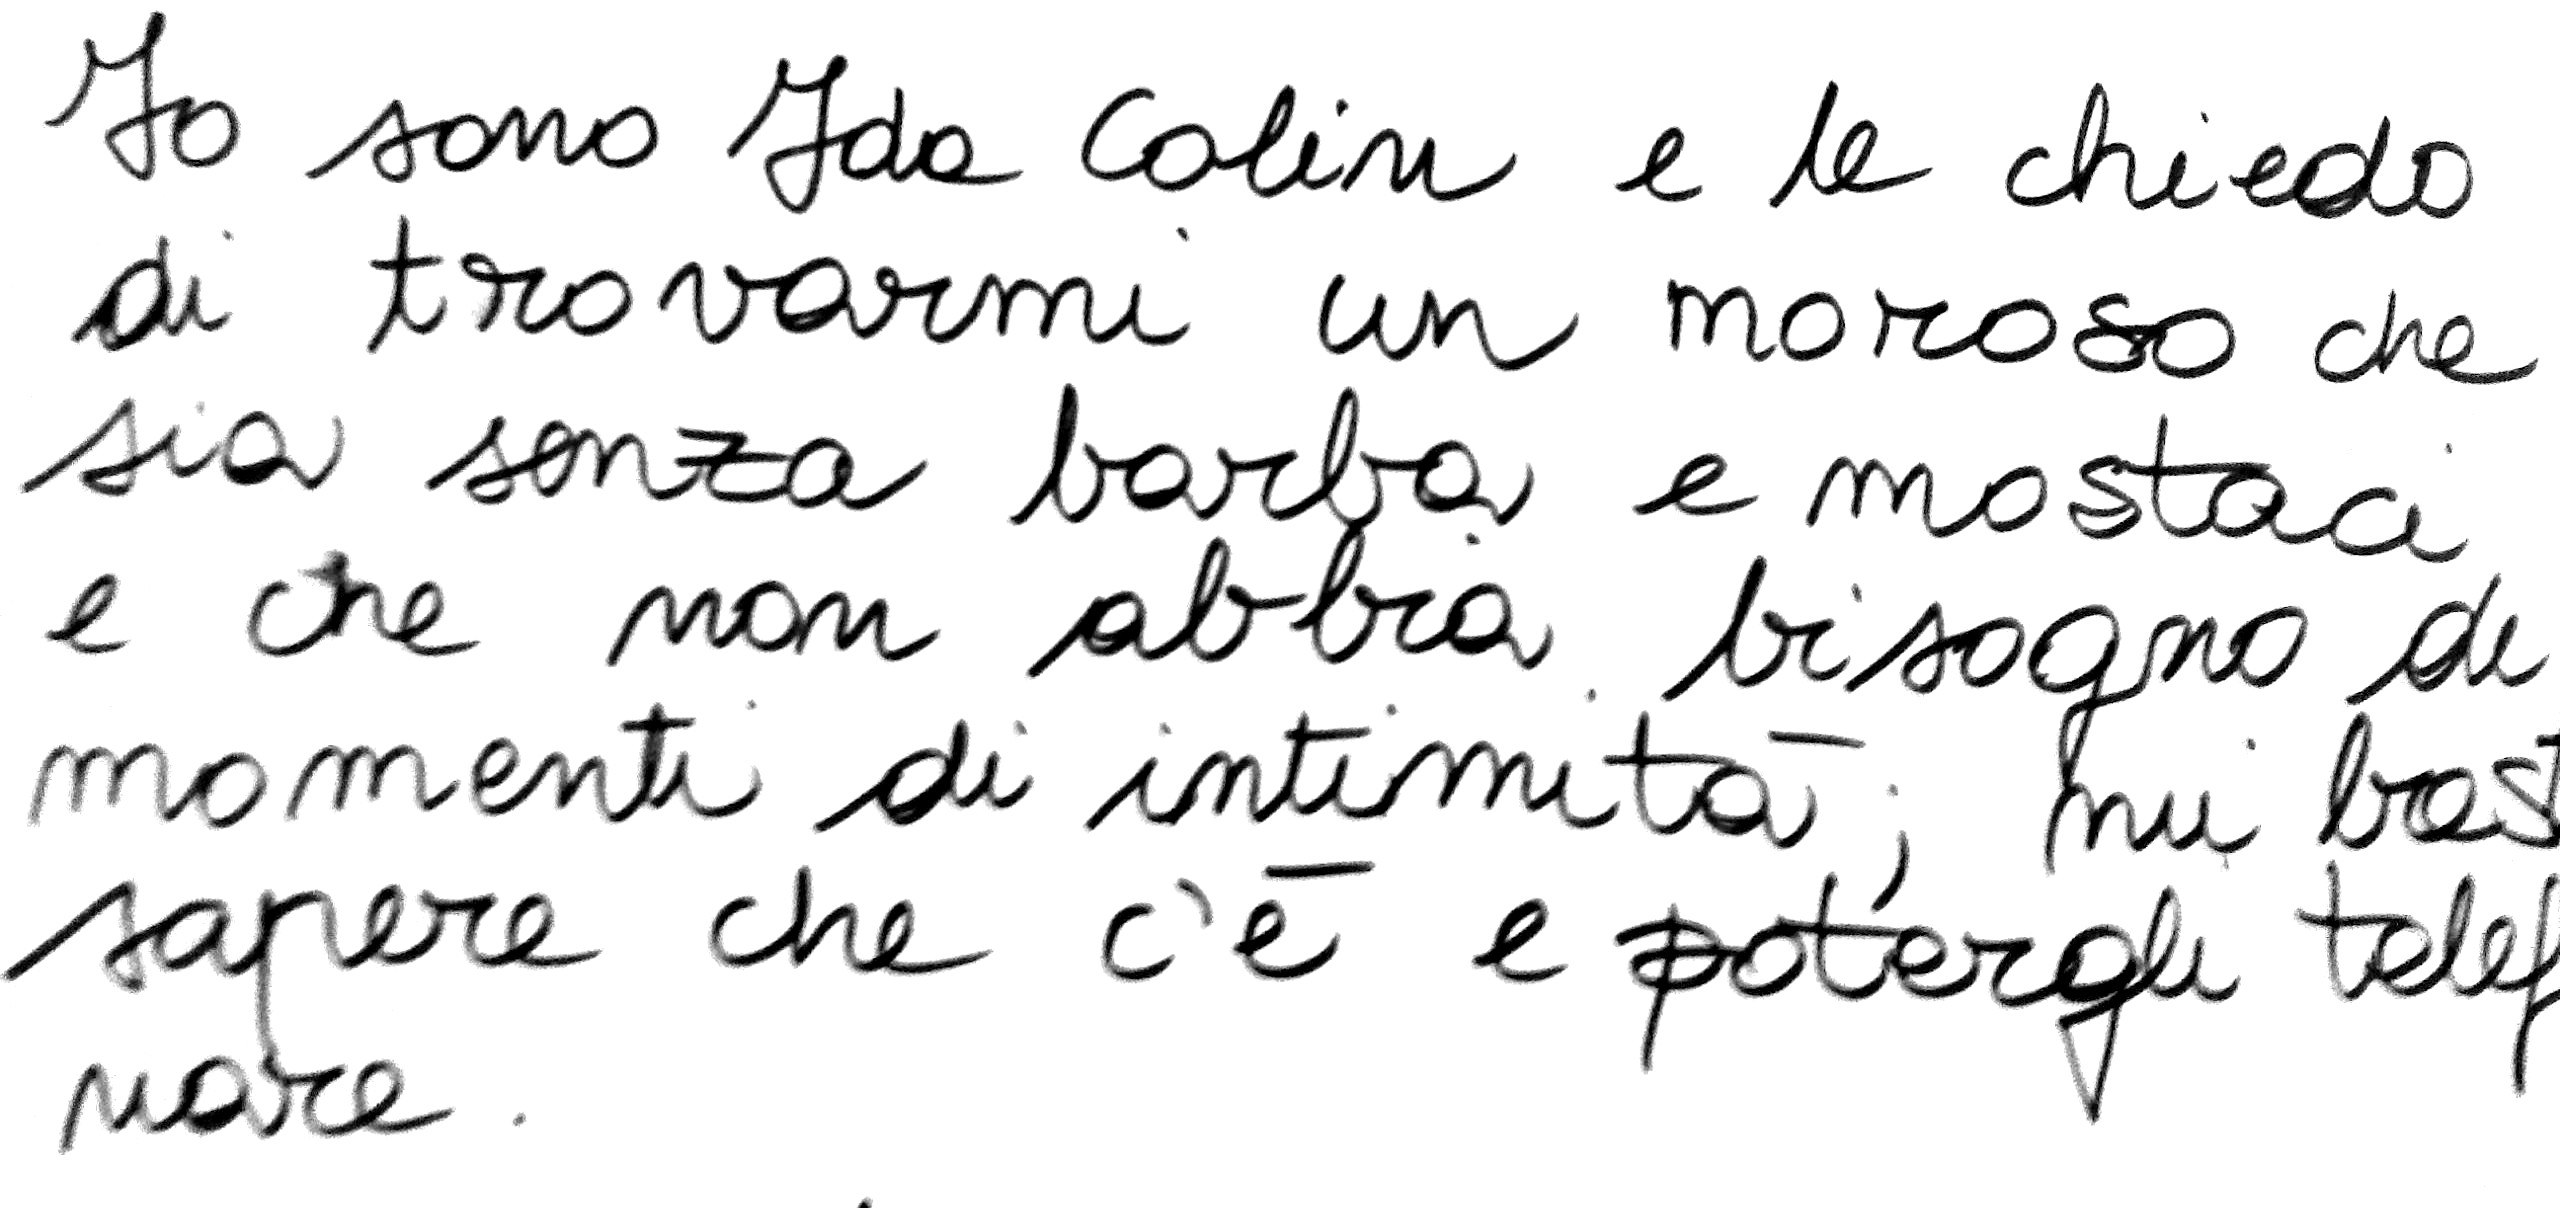 Io sono Ida Colin e le chiedo
di trovarmi un moroso che
sia senza barba e mostaci
e che non abbia bisogno di
momenti di intimità; mi bast
sapere che c'è e potergli telef
nare.